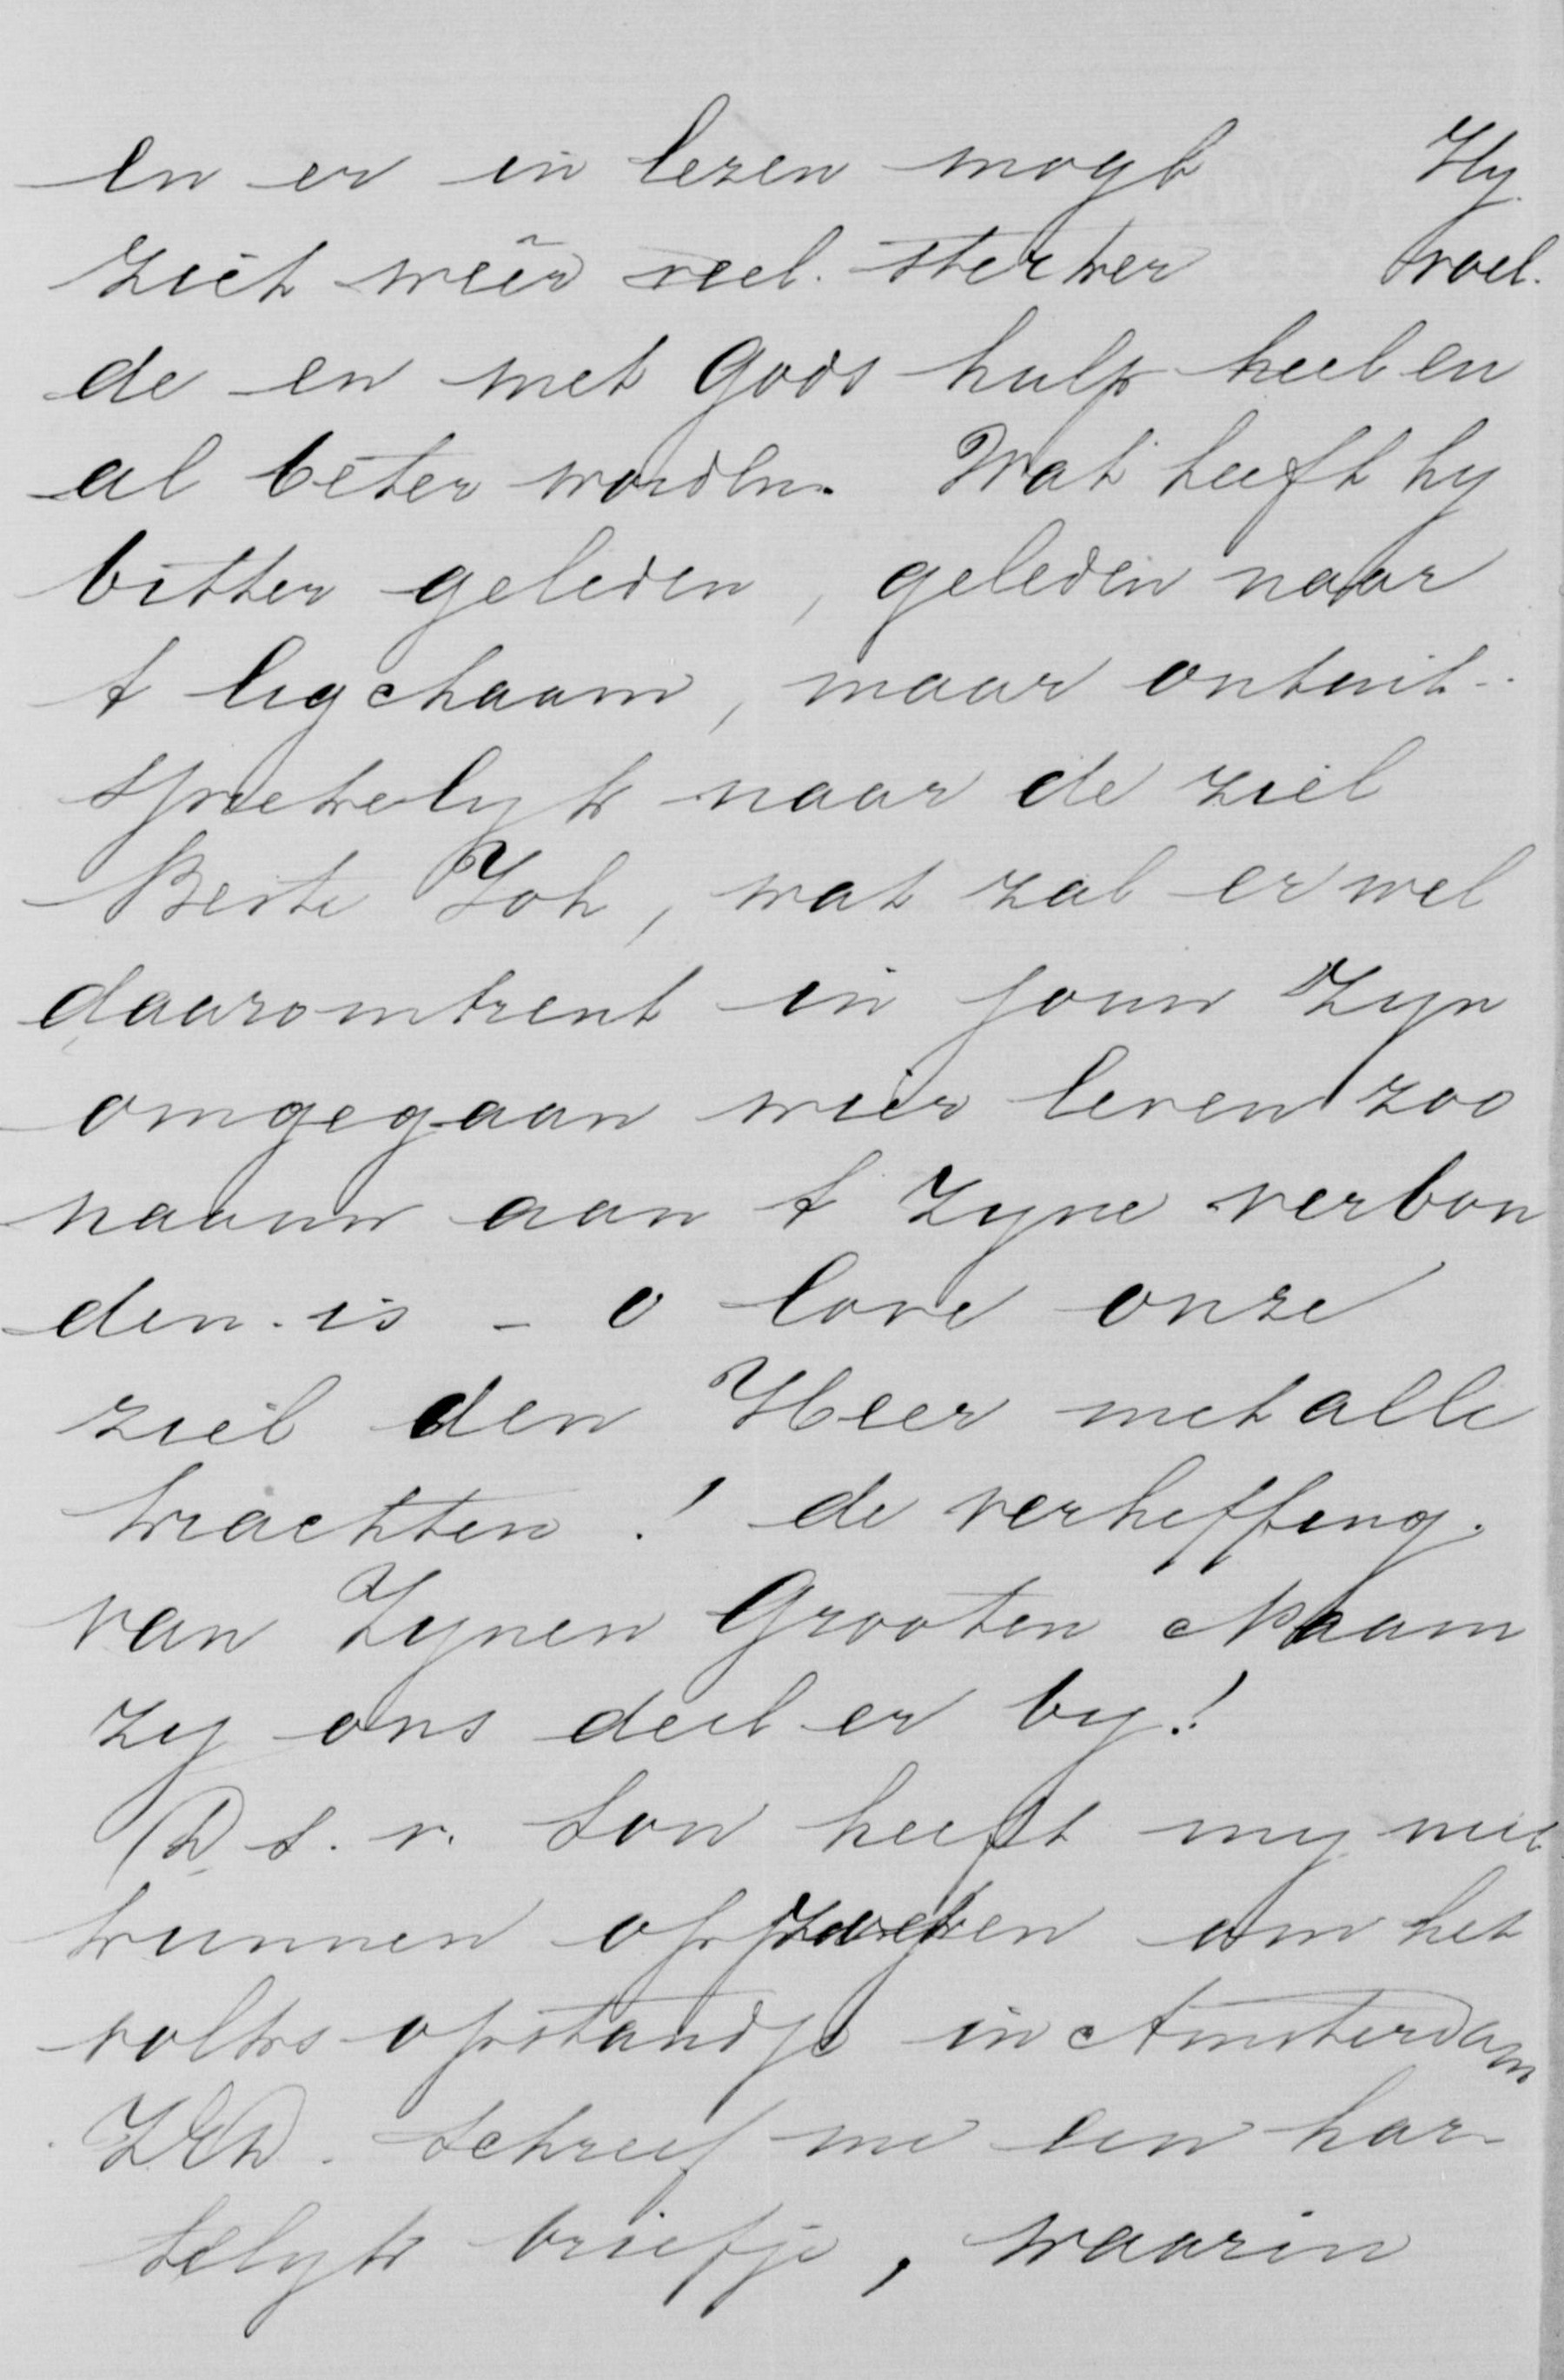 en er in lezen mogt Hy
zich weêr veel sterker voel.
de en met Gods hulp heel en
al beter worden. Wat heeft hy
bitter geleden, geleden naar
t ligchaam, maar ontuit-
sprekelyk naar de ziel
Beste Joh, wat zal er wel
daaromtrent in jouw zyn
omgegaan wier leven zoo
naauw aan t zyne verbon
den is - o love onze
ziel den Heer met alle
krachten! de verheffing
van Zynen Grooten Naam
zy ons deel er by!
Ds. v. Son heeft my niet
kunnen opzoeken om het
volks opstandje in Amsterdam
ZEw. schreef me een har-
telyk briefje, waarin